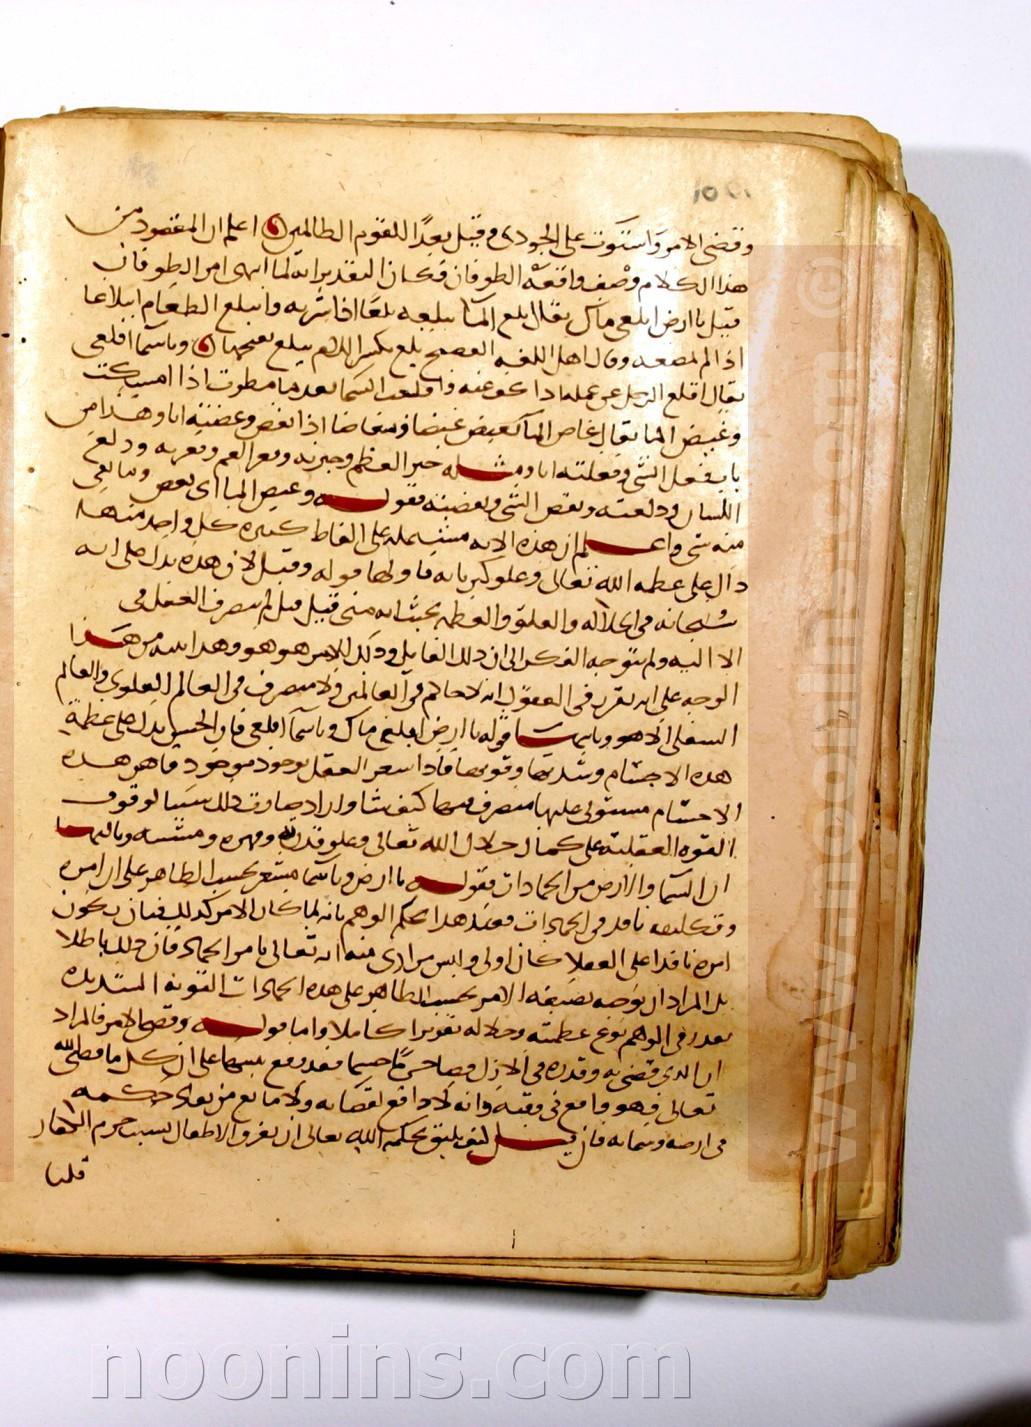 وقضى الامر واستوت على الجودى وقيل بعدًا للقوم الظالمين اعلم ان المقصود من
هذا الكلام وصف واقعة الطوفان فكان التقدير انه لما انهى امر الطوفان
قيل يا ارض ابلعى ماك يقال بلع الما يبلعه بلعًا اذا شربه وابتلع الطعام ابتلاعا
اذا لم يمضغه وقال اهل اللغه الفصيح بلع بكسر اللام يبلع بفتحها وياسما اقلعى
يقال اقلع الرجل عن عمله اذا كف عنه واقلعت السما بعد ما مطرت اذا امسكت
وغيض الما يقال غاض الما يغيض غيضا ومغاضا اذا نقص وغضته انا وهذا من
باب فعل الشى وفعلته انا ومثله جبر العظم وجبرته وفغر الفم وفغرته ودلع
اللسان ودلعته ونقص الشى ونقصته فقوله وغيض الما اى نقص وما بقى
منه شى واعلم ان هذه الايه مشتمله على الفاظ كثيره كل واحد منها
دال على عظمه الله تعالى وعلو كبريايه فاولها قوله وقيل لان هذه يدل على انه
سبحانه فى الجلاله والعلو والعظمه بحيث انه متى قيل قيل لم ينصرف العقل فى
الا اليه ولم يتوجه الفكر الى ان ذلك القايل وذلك الامر هو هو وهذا تنبيه من هذا
الوجه على انه تقرر فى العقول انه لا حاكم فى العالمين ولا متصرف فى العالم العلوى والعالم
السفلى الا هو وثانيها قوله يا ارض ابلعى ماك وياسما اقلعى فان الحس يدل على عظمة
هذه الاجسام وشدتها وقوتها فاذا شعر العقل بوجود موجود قاهر هذه
الاجسام مستولى عليها متصرف فيها كيف شا واراد صار ذلك سببا لوقوف
القوه العقلية على كمال جلال الله تعالى وعلو قدره وقهره ومشيته وثالثها
ان السما والارض من الجمادات فقوله يا ارض وياسما مشعر بحسب الظاهر على ان امره
وتكليفه نافذ فى الجمادات فعند هذا يحكم الوهم بانه لما كان الامر كذلك فبان يكون
امره نافذا على العقلا كان اولى وليس مرادى منه انه تعالى يامر الجماد فان ذلك باطلا
بل المراد ان توجه صيغه الامر بحسب الظاهر على هذه الجمادات القويه الشديده
يقرر فى الوهم نوع عظمته وجلاله تقريرا كاملا واما قوله وقضى الامر فالمراد
ان الذى قضى به وقدره فى الازل قضا جزمًا حتما فقد وقع تنبيها على ان كل ما قضى الله
تعالى فهو واقع فى وقته وانه لا دافع لقضايه ولا مانع من نفاذ حكمه
فى ارضه وسمايه فان قيل كيف يليق بحكمة الله تعالى ان يغرق الاطفال بسبب جرم الكفار
قلنا
noonins.com